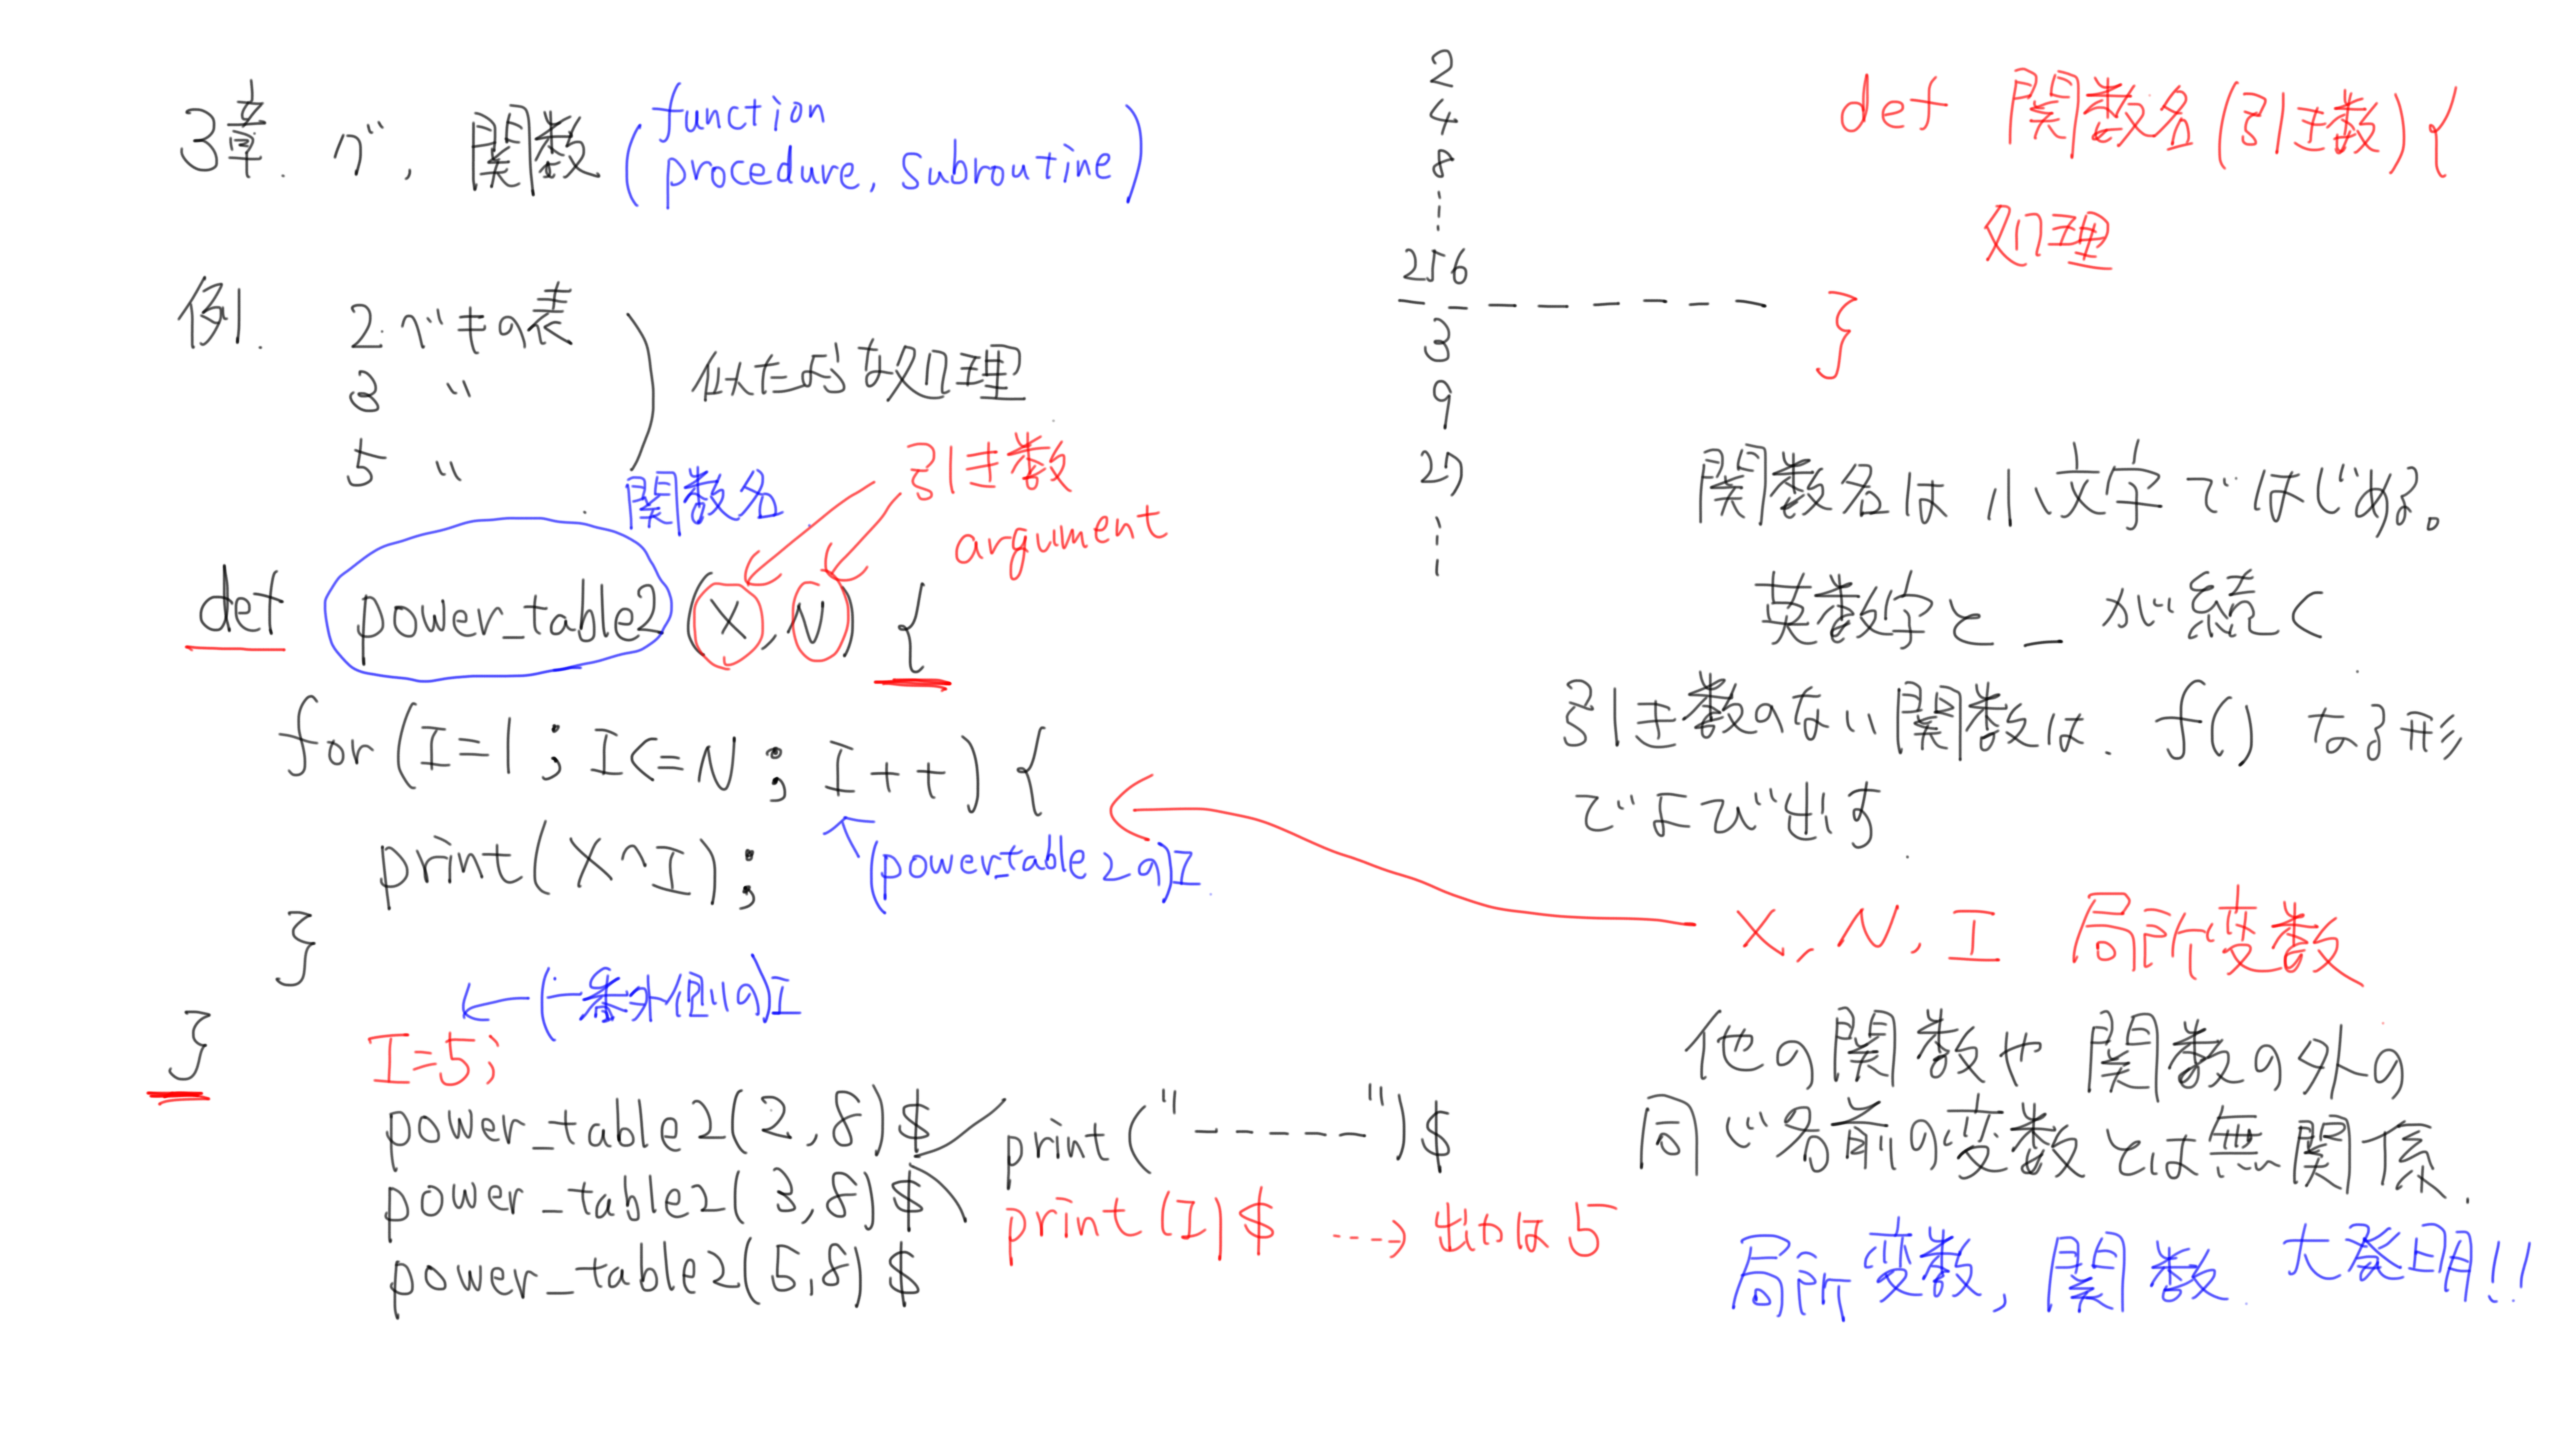 3章. べ, 関数 (function
procedure, subroutine)
例. 2べきの表
3 〃
5 〃
似たような処理
関数名
引き数
argument
def power_table2 (X, N) {
for (I=1 ; I<=N ; I++) {
print(X^I);
(power_table2の)I
}
}
←(一番外側の)I
I=5;
power_table2(2,8)$
print("-----")$
power_table2(3,8)$
print(I)$ ---→ 出力は5
power_table2(5,8)$
2
4
8
256
--------
3
9
27
def 関数名(引き数){
処理
}
関数名は小文字ではじめる。
英数字と _ が続く
引き数のない関数は. f() なる形
でよび出す.
X, N, I 局所変数
他の関数や関数の外の
同じ名前の変数とは無関係.
局所変数, 関数. 大発明!!